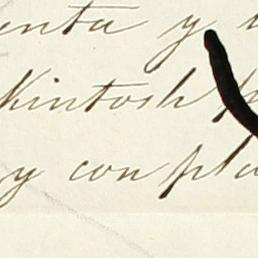 enta y
Kintosh
y con pla